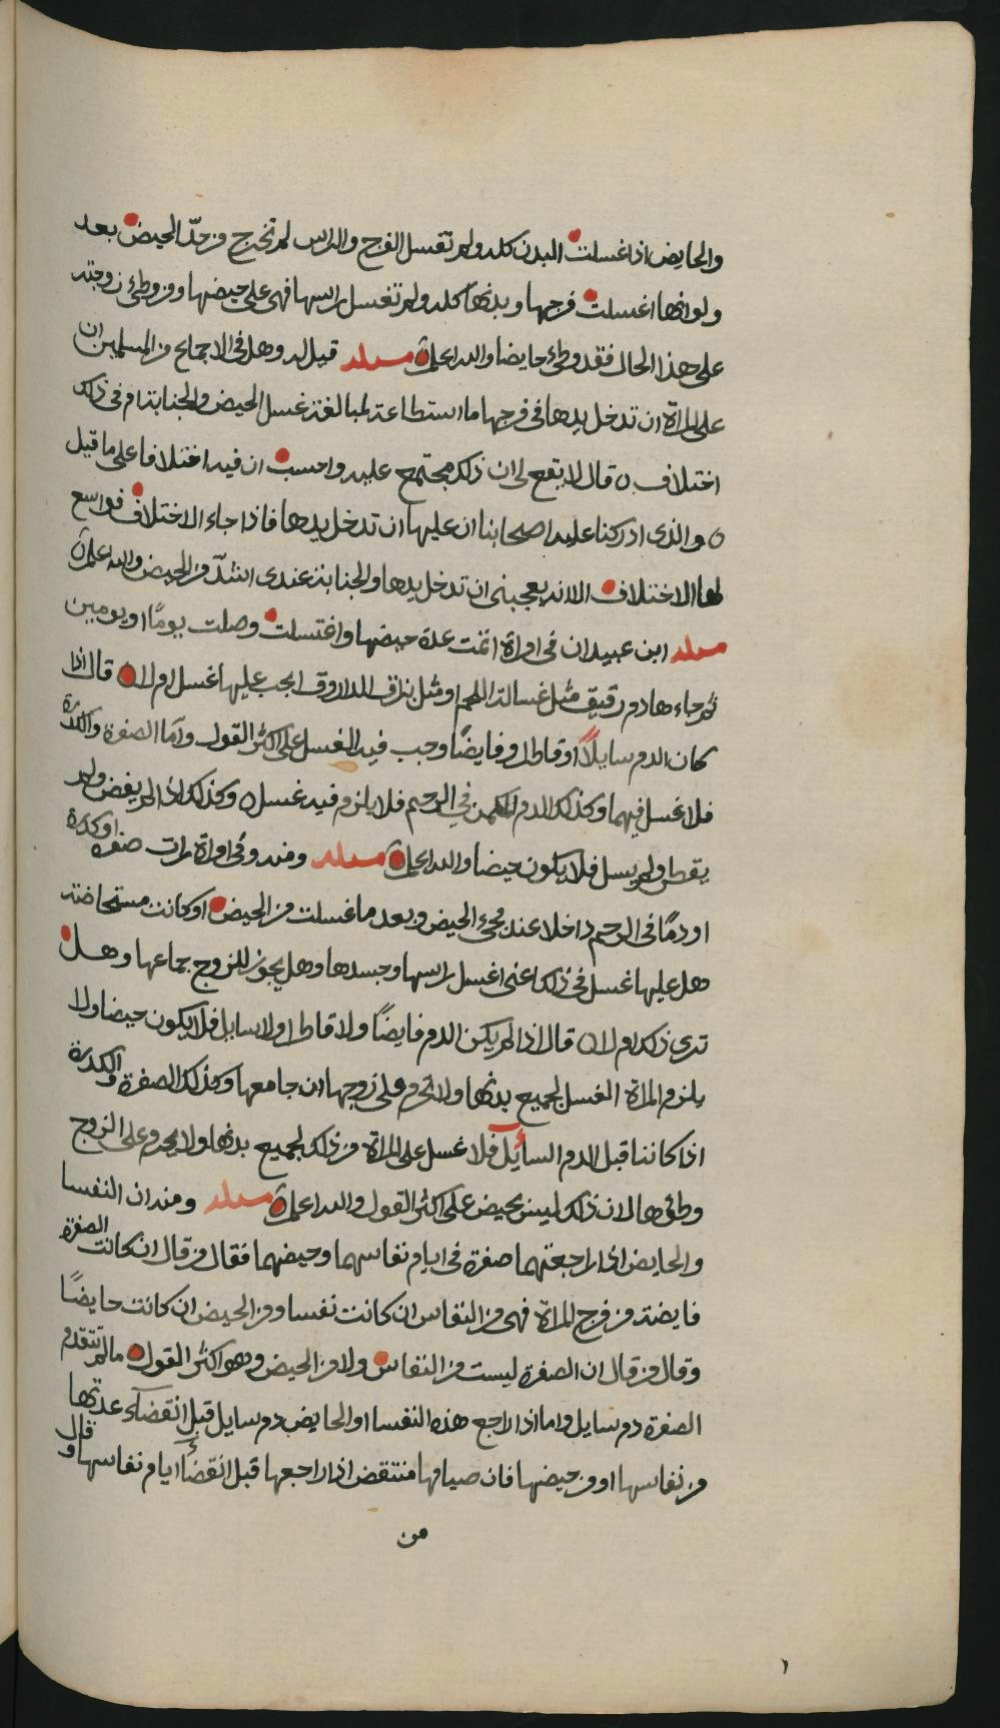 والحايض اذا غسلت البدن كله ولم تغسل الفرج والراس لم تخرج من حدّ الحيض بعد
ولو انها اغسلت فرجها وبدنها كله ولم تغسل راسها فهى على حيضها ومن وطئ زوجته
على هذا الحال فقد وطئ حايضا والله اعلم مسله قيل له وهل فى الاجماع من المسلمين ان
على المراة ان تدخل يدها فى فرجها ما استطاعة لمبالغة غسل الحيض والجنابة ام فى ذلك
اختلاف ه قال لا يقع لى ان ذلك مجتمع عليه واحسب ان فيه اختلافا على ما قيل
ه والذى ادركنا عليه اصحابنا ان عليها ان تدخل يدها فاذا جاء الاختلاف فواسع
لها الاختلاف الا انه يعجبنى ان تدخل يدها والجنابة عندى اشدّ من الحيض والله اعلم ه
مسله ابن عبيدان فى امراة اتمت عدة حيضها واغتسلت وصلت يومًا او يومين
ثم جاءها دم رقيق مثل غسالة اللحم او مثل بزاق ايجب عليها غسل ام لا ه قال اذا
كان الدم سايلًا او قاطرا وفايضًا وجب فيه الغسل على اكثر القول واما الصفرة والكدرة
فلا غسل فيهما وكذلك الدم فى الرحم فلا يلزم فيه غسل ه وكذلك اذا لم يفض ولم
يقطر ولم يسل فلا يكون حيضا والله اعلم مسله ومنه وفى امراة رات صفرة او كدرة
او دمًا فى الرحم داخلا عند مجئ الحيض وبعد ما غسلت من الحيض او كانت مستحاضة
هل عليها غسل فى ذلك اعنى اغسل راسها وجسدها وهل يجوز للزوج جماعها وهل
ترى ذلك ام لا ه قال اذا لم يكن الدم فايضًا ولا قاطرا ولا سايل فلا يكون حيضا ولا
يلزم المراة الغسل لجميع بدنها ولا تحرم على زوجها ان جامعها وكذلك الصفرة والكدرة
اذا كانتا قبل الدم السائل فلا غسل على المراة من ذلك لجميع بدنها ولا يحرم على الزوج
وطؤها لان ذلك ليس بحيض على اكثر القول والله اعلم ه مسله ومنه ان النفسا
والحايض اذا راجعتهما صفرة فى ايام نفاسهما وحيضهما فقال من قال ان كانت الصفرة
فايضة من فرج المراة فهى من النفاس ان كانت نفسا ومن الحيض ان كانت حايضًا
وقال من قال ان الصفرة ليست من النفاس ولا من الحيض وهو اكثر القول ه ما لم تتقدم
الصفرة دم سايل واما اذا راجع هذه النفسا او الحايض دم سايل قبل انقضاء عدتها
من نفاسها او من حيضها فان صيامها منتقض اذا راجعها قبل انقضاء ايام نفاسها وقال
من